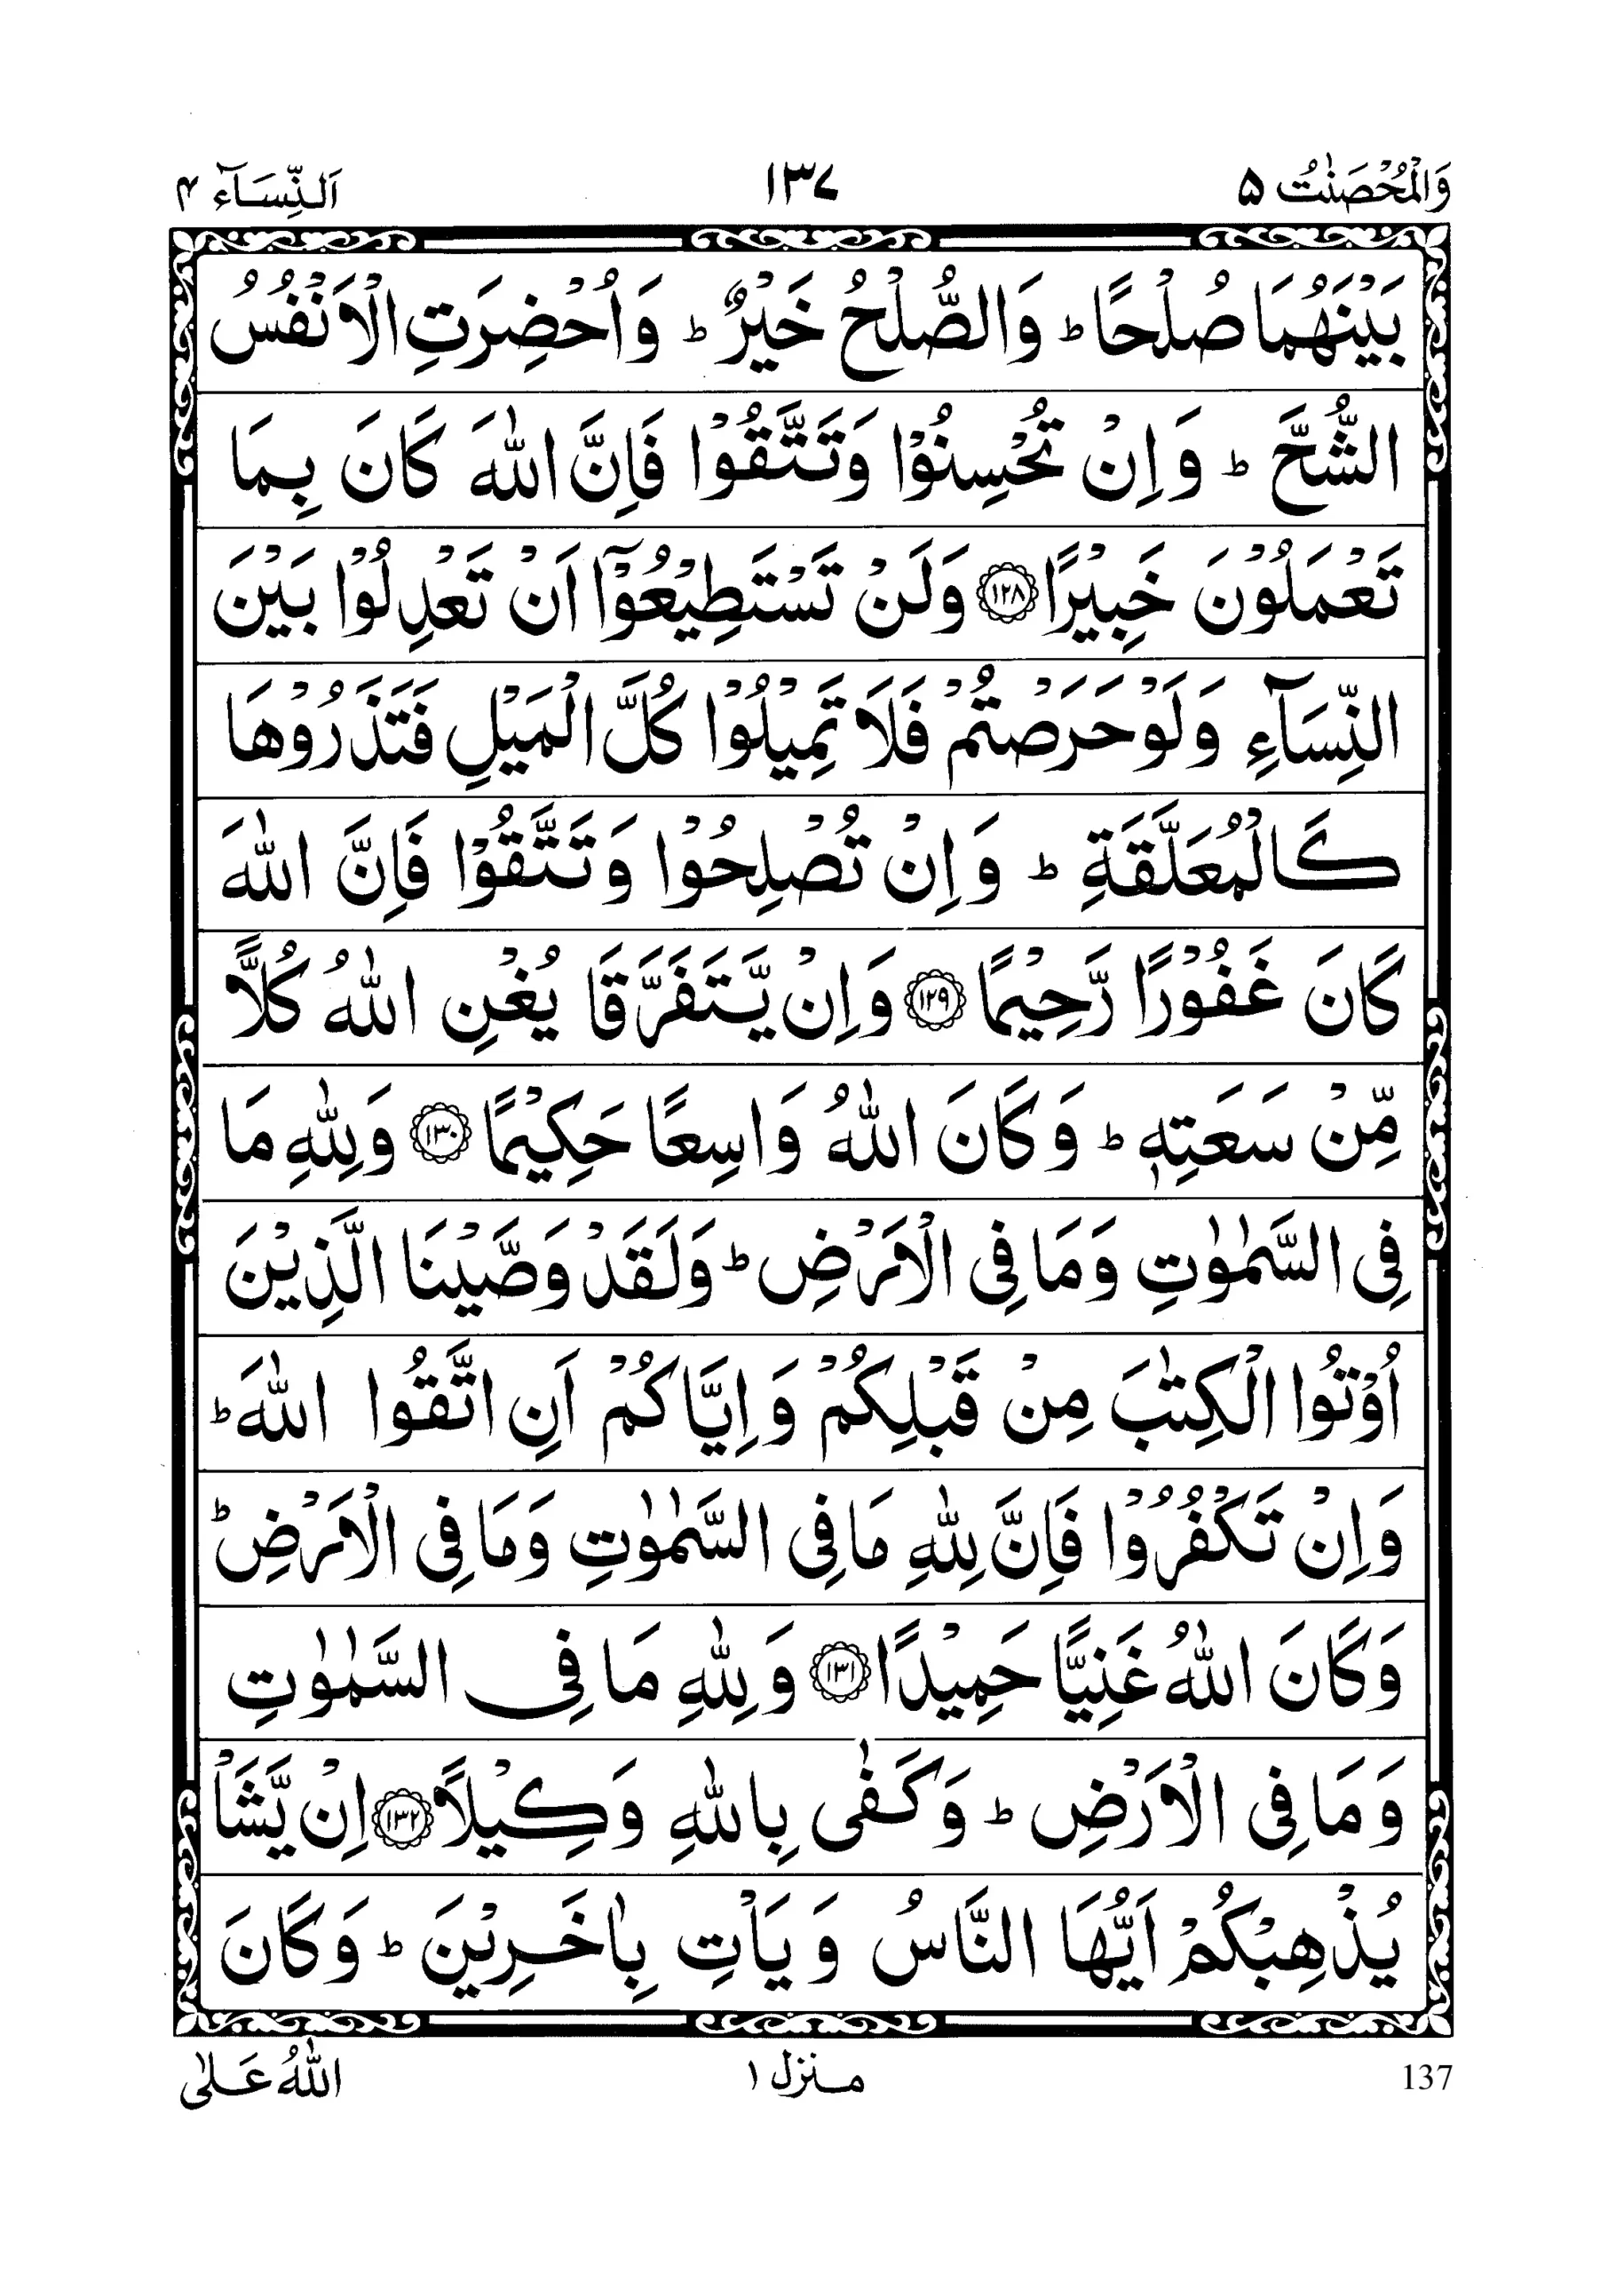 وَالْمُحْصَنٰتُ ۵ ۱۳۷ اَلنِّسَآء ۴
بَيْنَهُمَا صُلْحًا ؕ وَالصُّلْحُ خَيْرٌ ؕ وَاُحْضِرَتِ الْاَنْفُسُ
الشُّحَّ ؕ وَاِنْ تُحْسِنُوْا وَتَتَّقُوْا فَاِنَّ اللّٰهَ كَانَ بِمَا
تَعْمَلُوْنَ خَبِيْرًا ۱۲۸ وَلَنْ تَسْتَطِيْعُوْۤا اَنْ تَعْدِلُوْا بَيْنَ
النِّسَآءِ وَلَوْ حَرَصْتُمْ فَلَا تَمِيْلُوْا كُلَّ الْمَيْلِ فَتَذَرُوْهَا
كَالْمُعَلَّقَةِ ؕ وَاِنْ تُصْلِحُوْا وَتَتَّقُوْا فَاِنَّ اللّٰهَ
كَانَ غَفُوْرًا رَّحِيْمًا ۱۲۹ وَاِنْ يَّتَفَرَّقَا يُغْنِ اللّٰهُ كُلًّا
مِّنْ سَعَتِهٖ ؕ وَكَانَ اللّٰهُ وَاسِعًا حَكِيْمًا ۱۳۰ وَلِلّٰهِ مَا
فِى السَّمٰوٰتِ وَمَا فِى الْاَرْضِ ؕ وَلَقَدْ وَصَّيْنَا الَّذِيْنَ
اُوْتُوا الْكِتٰبَ مِنْ قَبْلِكُمْ وَاِيَّاكُمْ اَنِ اتَّقُوا اللّٰهَ ؕ
وَاِنْ تَكْفُرُوْا فَاِنَّ لِلّٰهِ مَا فِى السَّمٰوٰتِ وَمَا فِى الْاَرْضِ ؕ
وَكَانَ اللّٰهُ غَنِيًّا حَمِيْدًا ۱۳۱ وَلِلّٰهِ مَا فِى السَّمٰوٰتِ
وَمَا فِى الْاَرْضِ ؕ وَكَفٰى بِاللّٰهِ وَكِيْلًا ۱۳۲ اِنْ يَّشَاْ
يُذْهِبْكُمْ اَيُّهَا النَّاسُ وَيَاْتِ بِاٰخَرِيْنَ ؕ وَكَانَ
137 منزل ۱ اللّٰهُ عَلٰى